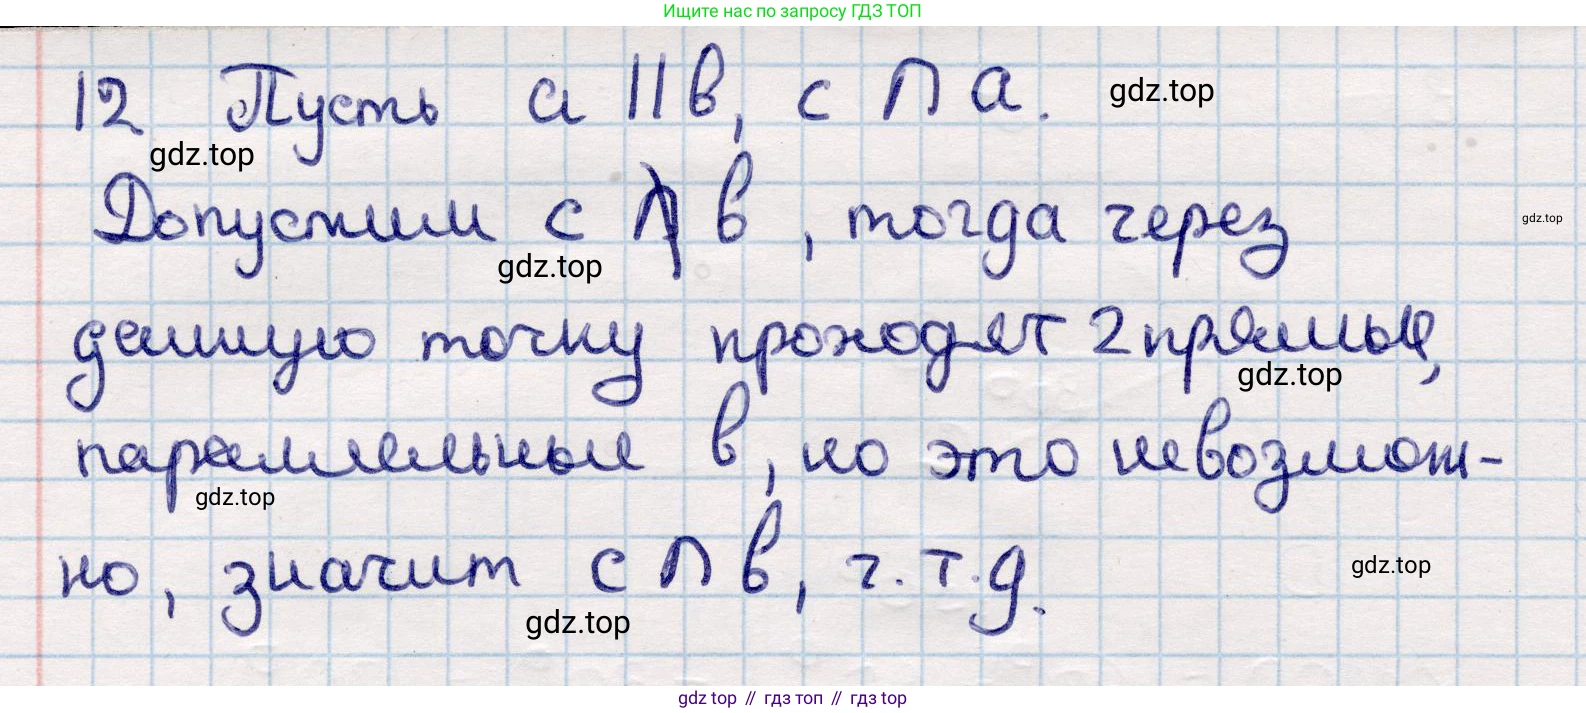 Ищите нас по запросу ГДЗ ТОП
12 Пусть a || b, c ∩ a.
gdz.top
gdz.top
Допустим c ∦ b, тогда через
gdz.top
gdz.top
данную точку проходят 2 прямые,
gdz.top
параллельные b, но это невозмож-
gdz.top
но, значит c ∩ b, ч.т.д.
gdz.top
gdz.top
gdz top // гдз топ // гдз top